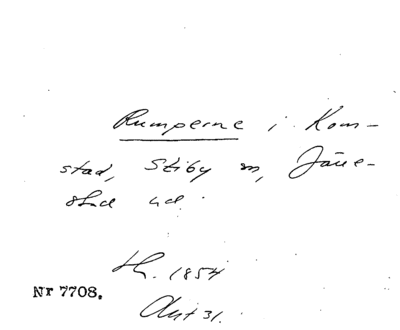 Rumperne i Kom-
stad, Stiby sn, Järre-
stad hd.
th. 1854
Nr 7708.
Akt 31.